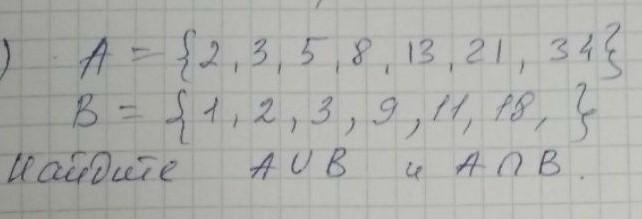 ) A = {2, 3, 5, 8, 13, 21, 34}
B = {1, 2, 3, 9, 11, 18, }
Найдите A ∪ B и A ∩ B.